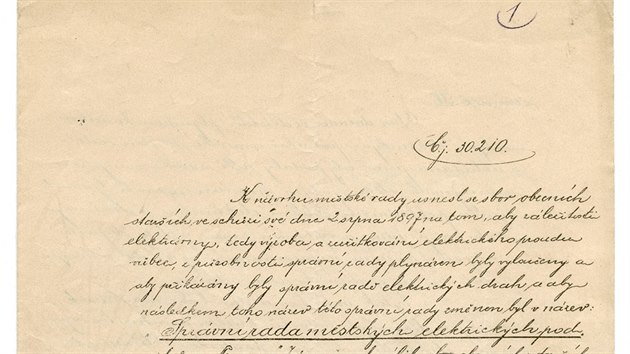 1
Čj. 30.210.
K návrhu městské rady usnesl se sbor obecních
starších ve schůzi své dne 2 srpna 1897 na tom, aby záležitosti
elektrárny, tedy výroba a zužitkování elektrického proudu
vůbec, z působnosti správní rady plynáren byly vyloučeny a
aby přikázány byly správní radě elektrických drah a aby
následkem toho název této správní rady změněn byl v název:
Správní rada městských elektrických pod-